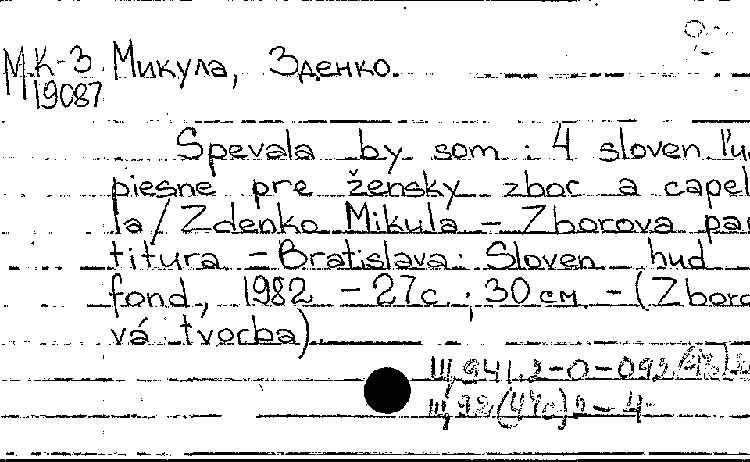 М.К-3 Микула, Зденко.
19087
Spevala by som : 4 sloven ľu
piesne pre žensky zbor a capel
la / Zdenko Mikula - Zborova par
titura - Bratislava: Sloven hud
fond, 1982 - 27с ; 30 см - (Zboro
vá tvorba)
Щ941.2-0-092
Щ92(4Че)2-4